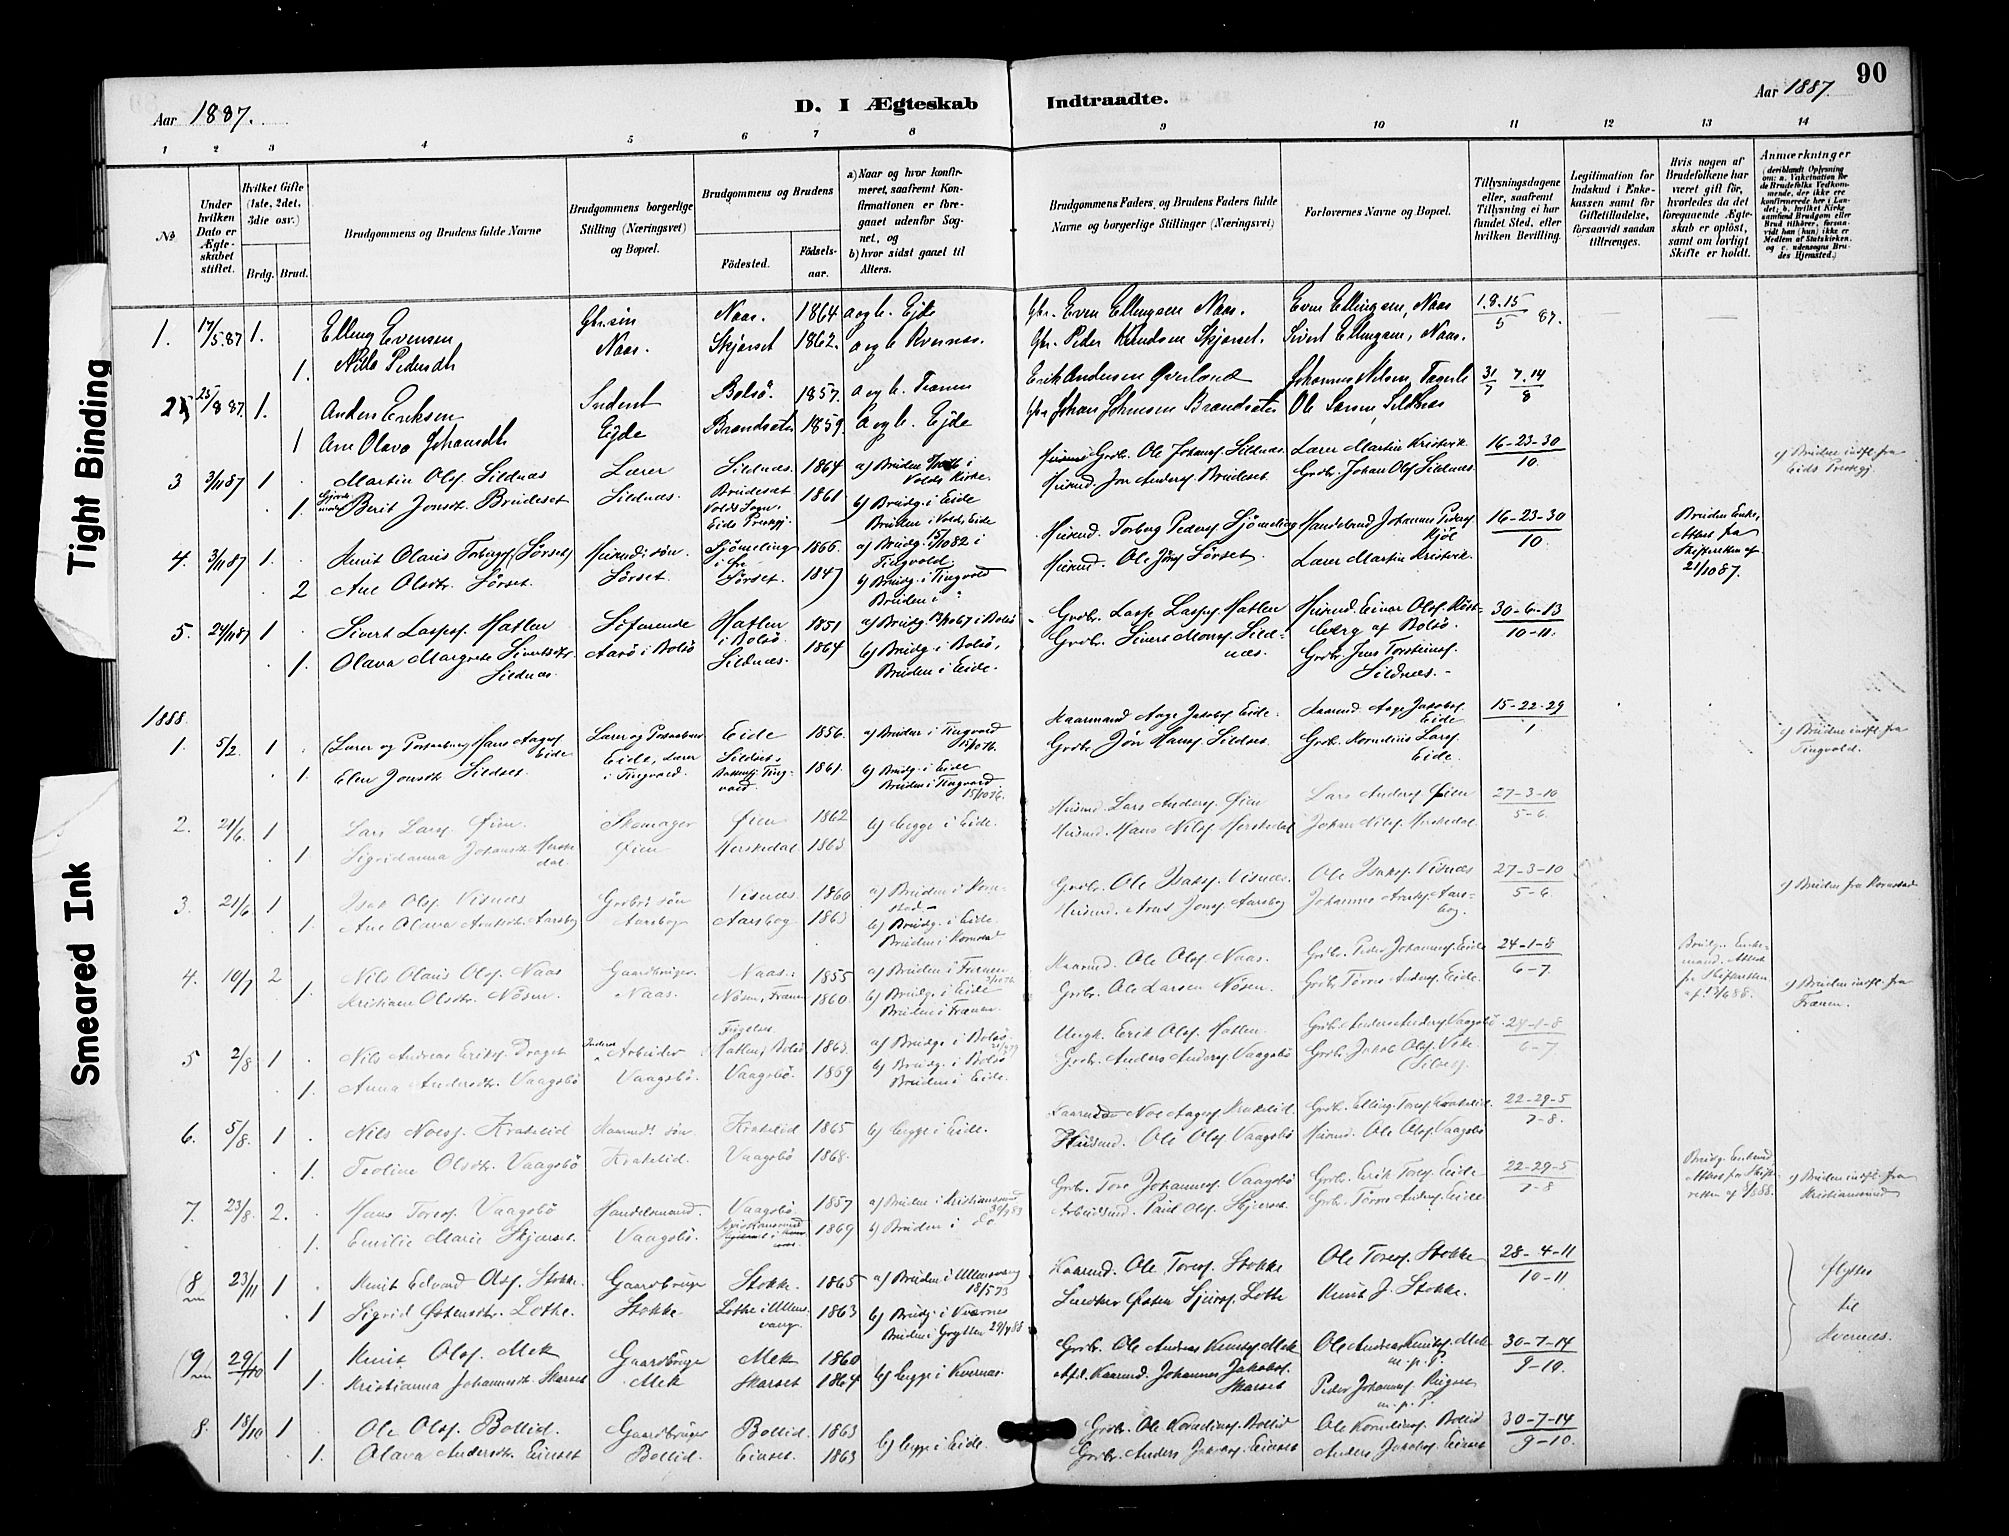 90
Aar 1887.
D. I Ægteskab Indtraadte.
Aar 1887.
1 2 3 4 5 6 7 8 9 10 11 12 13 14
No
Under hvilken Dato er Ægteskabet stiftet.
Hvilket Gifte (1ste, 2det, 3die osv.)
Brdg. Brud.
Brudgommens og Brudens fulde Navne
Brudgommens borgerlige Stilling (Næringsvei) og Bopæl.
Brudgommens og Brudens
Födested.
Födselsaar.
a) Naar og hvor konfirmeret, saafremt Konfirmationen er foregaaet udenfor Sognet, og
b) hvor sidst gaaet til Alters.
Brudgommens Faders, og Brudens Faders fulde Navne og borgerlige Stillinger (Næringsvei)
Forlovernes Navne og Bopæl.
Tillysningsdagene eller, saafremt Tillysning ei har fundet Sted, efter hvilken Bevilling.
Legitimation for Indskud i Enkekassen samt for Giftetilladelse, forsaavidt saadan tiltrænges.
Hvis nogen af Brudefolkene har været gift för, hvorledes da det foregaaende Ægteskab er oplöst, samt om lovligt Skifte er holdt.
Anmærkninger
(deriblandt Oplysning om: a. Vakcination for de Brudefolks Vedkommende, der ikke ere konfirmerede her i Landet, b. hvilket Kirkesamfund Brudgom eller Brud tilhörer, forsaavidt han (hun) ikke er Medlem af Statskirken, og c. udensogns Brudes Hjemsted.)
1. 17/5.87 1. Elling Evensen Gbr.sön Naas. 1864 a og b. Ejde Gbr. Even Ellingsen Naas. Even Ellingsen, Naas 1.8.15/5 87.
1. Nilla Pedersdt Naas. Skjærset 1862. a og b Kvernæs. Gbr. Peder Knudsen Skjærset. Sivert Ellingsen, Naas.
2 25/8 87. 1. Anders Eriksen Inderst Bolsö. 1857. a og b. Erik Andersen Överland Johannes Nilsen 31/7 7.14/8
1 Ane Olava Johansdt. Ejde Brandsæter 1859. a og b. Ejde Gbr. Johan Johnsen Brandsæter Ole Larsen Sildnæs
3 3/11 87 1 Martin Ols. Sildnæs Lærer Sildnæs. 1864 a) Bruden i Volds Kirke. Grbr. Ole Johans. Sildnæs. Lærer Martin Kristvik 16-23-30/10. c) Bruden indfl. fra Eids Prestegj.
1. Berit Jonsdt. Brudeset Sildnæs. Brudeset Volds Sogn, Eids Prestgj. 1861 b) Brudg. i Eide Bruden i Vold, Eide Husmd. Jon Anders. Brudeset Grbr. Johan Ols. Sildnæs.
4. 3/11 87 1. Knut Olaus Torbergs. (Sörset) Husmd. sön. Sjömeling 1866. a) Brudg. 15/10 82 i Tingvold Husmd. Torberg Peders. Sjömeling Handelsmd. Johannes Peders. 16-23-30/10. Bruden Enke, Attest fra Skifteretten af 21/10 87.
2 Ane Olsdtr. Sörset. Sörset. Sörset. 1847 b) Brudg. i Tingvold Bruden i " Husmd. Ole Jons. Sörset. Lærer Martin Kristvik.
5. 24/11 87 1 Sivert Lasses. Hatlen Söfarende Hatlen i Bolsö. 1851 a) Brudg. i Bolsö Grbr. Lasse Lasses. Hatlen Husmd. Einar Ols. af Bolsö. 30-6-13/10-11.
1. Olava Margrete Sivertsdtr. Sildnæs. Aarö i Bolsö Sildnæs. 1864 b) Brudg. i Bolsö, Bruden i Eide. Grbr. Sivert Mons. Sildnæs. Grbr. Jens Torsteins. Sildnæs.
1888.
1. 5/2. 1 (Lærer og Postaabner) Hans Aages. Eide Lærer og Postaabner Eide 1856. a) Bruden i Tingvold 15/10 76. Kaarmand Aage Jakobs. Eide. Kaarmd. Aage Jakobs. Eide 15-22-29/1 c) Bruden indfl. fra Tingvold.
1. Elen Jonsdt. Sildset. Eide, Lærer i Tingvold. Sildset, Tingvold. 1861. b) Brudg. i Eide Bruden i Tingvold Grbr. Jon Hans. Sildset. Grbr. Kornelius Lars. Eide.
2. 21/6. 1 Lars Lars. Öien. Skomager Öien 1862 b) begge i Eide. Husmd. Lars Anders. Öien Lars Anders. Öien 27-3-10/5-6.
1 Sigridanna Johansdt. Herskedal Öien Herskedal 1863 Husmd. Hans Nils. Herskedal Johan Nils. Herskedal
3. 21/6 1 Isak Ols. Visnæs Grbr. sön Visnæs 1860 a) Bruden i Kornstad Grbr. Ole Isaks. Visnæs. Ole Isaks. Visnæs 27-3-10/5-6. c) Bruden fra Kornstad
1. Ane Olava Arntsdt. Aarsbog Aarsbog Aarsbog 1863 b) Brudg. i Eide. Bruden i Kornstad Husmd. Arnt Jons. Aarsbog Johannes Arnts. Aarsbog.
4. 10/7 2 Nils Olaus Ols. Naas Gaardbruger Naas. 1855 a) Bruden i Frænen Kaarmd. Ole Ols. Naas. Grbr. Peder Johannes. Eide 24-1-8/6-7. Brudg. Enkemand. Attest fra Skifteretten af 13/6 88. c) Bruden indfl. fra Frænen.
1. Kristiane Olsdtr. Nösen. Naas. Nösen, Frænen 1860 b) Brudg. i Eide Bruden i Frænen. Grbr. Ole Larsen Nösen. Grbr. Törres Anders. Eide.
5 2/8 1 Nils Andreas Eriks. Draget Arbeider Hatlen i Bolsö 1863. a) Brudg. i Bolsö. Ungk. Erik Ols. Hatlen. Grbr. Anders Anders. Vaagsbö. 24-1-8/6-7.
1. Anna Andersdt. Vaagsbö Vaagsbö. Vaagsbö. 1869 b) Brudg. i Bolsö Bruden i Eide. Grbr. Anders Anders. Vaagsbö Grbr. Jakob Ols.
6. 5/8. 1 Nils Noes. Krakelid Kaarmd. sön Krakelid 1865 b) begge i Eide. Kaarmd. Noe Aages. Krakelid. Grbr. Elling Tores. Krakelid. 22-29-5/7-8.
1. Teoline Olsdtr. Vaagsbö Krakelid. Vaagsbö 1868. Husmd. Ole Ols. Vaagsbö Husmd. Ole Ols. Vaagsbö
7. 23/8. 2. Hans Tores. Vaagsbö Handelsmand. Vaagsbö 1857 a) Bruden i Kristiansund Grbr. Tore Johannes. Vaagsbö Grbr. Erik Tores. Eide 22-29-5/7-8 Brudg. Enkemd. Attest fra Skifteretten c) Bruden indfl. fra Kristiansund
1. Emilie Marie Skjærset. Vaagsbö. Kristiansund 1869 b) Bruden i do. Arbeidsmd. Paul Ols. Skjærset. Grbr. Törres Anders. Eide
(8 23/11 1 Knut Edvard Ols. Stokke. Gaardbruger Stokke. 1865 a) Bruden i Ullensvang 18/5 73 Kaarmd. Ole Tores. Stokke Ole Tores. Stokke 28-4-11/10-11 flyttes til Kvernæs.
1 Sigrid Östensdtr. Lothe. Stokke Lothe i Ullensvang. 1863 b) Brudg. i Kvernæs Bruden i Grytten Östen Sjurs. Lothe Knut J. Stokke.
(9 29/10 1 Knut Ols. Mek Gaardbruger Mek 1860 b) begge i Kvernæs. Grbr. Ole Andreas Knuts. Mek Ole Andreas Knuts. Mek m.p.P. 30-7-14/9-10.
1. Kristianna Johannesdt. Skarset Mek Skarset 1864 Kaarmd. Johannes Jakobs. Skarset Peder Johannes. m.p.P.
8. 18/10 1 Ole Ols. Bollid. Gaardbruger Bollid. 1863 b) begge i Eide. Grbr. Ole Kornelius. Bollid Ole Kornelius. Bollid 30-7-14/9-10.
1. Olava Andersdt. Einset Bollid. Einset. 1863 Grbr. Anders Jakobs. Einset Anders Jakobs. Einset
Tight Binding
Smeared Ink